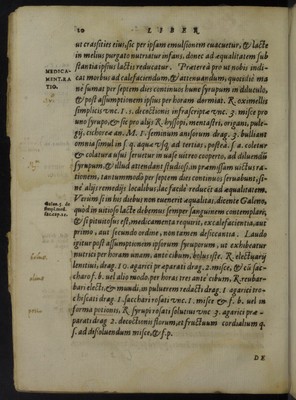 20 LIBER
ut crassities eius, sic per ipsam emulsionem euacuetur, & lacte
in melius purgato nutriatur infans, donec ad aqualitatem sub
stantia ipsius lactis reducatur. Praterea pro ut nobis indi-
MEDICA-
MINT. RA
TIO.
cat morbus ad calefaciendum, & attenuandum, quotidie ma
ne sumat per septem dies continuos hunc syrupum in diluculo,
& post assumptionem ipsius per horam dormiat. R. oximellis
simplicis vnc. 1. s. decoctionis infrascripta vnc. 3. misce pro
uno syrupo, & sic pro aliis R. hyssopi, mentastri, origani, pule-
gij, cichorea an. M. 1. seminum anisorum drag. 3. bulliant
omnia simul in s. q. aqua vsq; ad tertias, postea s. a. coletur
& colatura usui seruetur in uase uitreo cooperto, ad diluendū
syrupum, & illud attendant studiosi, in pramissam uictus ra-
tionem, tantummodo per septem dies continuos seruabunt, si-
ne alijs remedijs localibus, lac facile reducet ad aqualitatem.
Galen. 5. de
Verum si in his diebus non euenerit aqualitas, dicente Galeno,
quòd in uitijs lactis debemus semper sanguinem contemplari,
& si pituitosus est, medicamenta requirit, excalefacientia, aut
primo, aut secundo ordine, non tamen desiccantia. Laudo
igitur post assumptionem ipsorum syruporum, ut exhibeatur
nutrici per horam unam ante cibum, bolus iste. R. electuarij
lenitiui, drag. 10. agarici praparati drag. 2. misce, & cū sac-
charo f. b. uel alio modo, per horas tres ante cibum, R. reubar-
bari electi, & mundi, in puluerem redacti drag. 1. agarici tro-
chiscati drag. 1. sacchari rosati vnc. 1. misce & f. b. uel in
forma potionis, R. syrupi rosati solutiui vnc. 3. agarici præ-
parati drag. 2. decoctionis florum, et fructuum cordialium q.
s. ad dissoluendum misce, & f. p.
DE